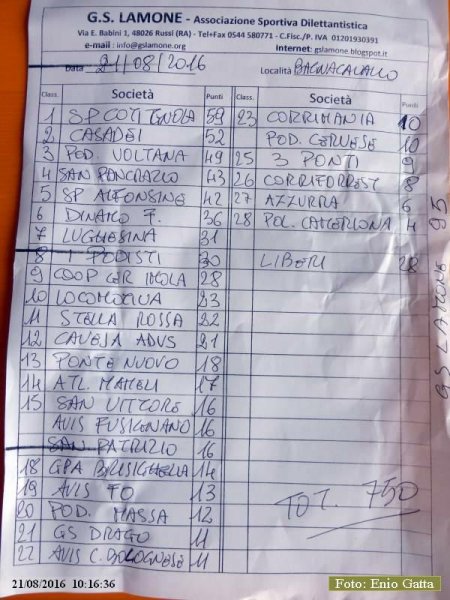 G.S. LAMONE - Associazione Sportiva Dilettantistica
Via E. Babini 1, 48026 Russi (RA) - Tel+Fax 0544 580771 - C.Fisc./P. IVA 01201930391
e-mail : info@gslamone.org Internet: gslamone.blogspot.it
Data 21/08/2016 Località BAGNACAVALLO
Class. Società Punti Class. Società Punti
1 SP COTIGNOLA 59 23 CORRIMANIA 10
2 CASADEI 52 POD. CERVESE 10
3 POD. VOLTANA 49 25 3 PONTI 9
4 SAN PANCRAZIO 43 26 CORRIFORREST 8
5 SP ALFONSINE 42 27 AZZURRA 6
6 DINAMO F. 36 28 POL. CAMERLONA 4
7 LUGHESINA 31
8 I PODISTI 30 LIBERI 28
9 COOP CER IMOLA 28
10 LOCOMOTIVA 23
11 STELLA ROSSA 22
12 CAVEJA ADVS 21
13 PONTE NUOVO 18
14 ATL. MAMELI 17
15 SAN VITTORE 16
AVIS FUSIGNANO 16
SAN PATRIZIO 16
18 GPA BRISIGHELLA 14
19 AVIS FO 13
20 POD. MASSA 12
21 GS DRAGO 11
22 AVIS C. BOLOGNESE 11
TOT. 750
GS LAMONE 95
21/08/2016 10:16:36
Foto: Enio Gatta